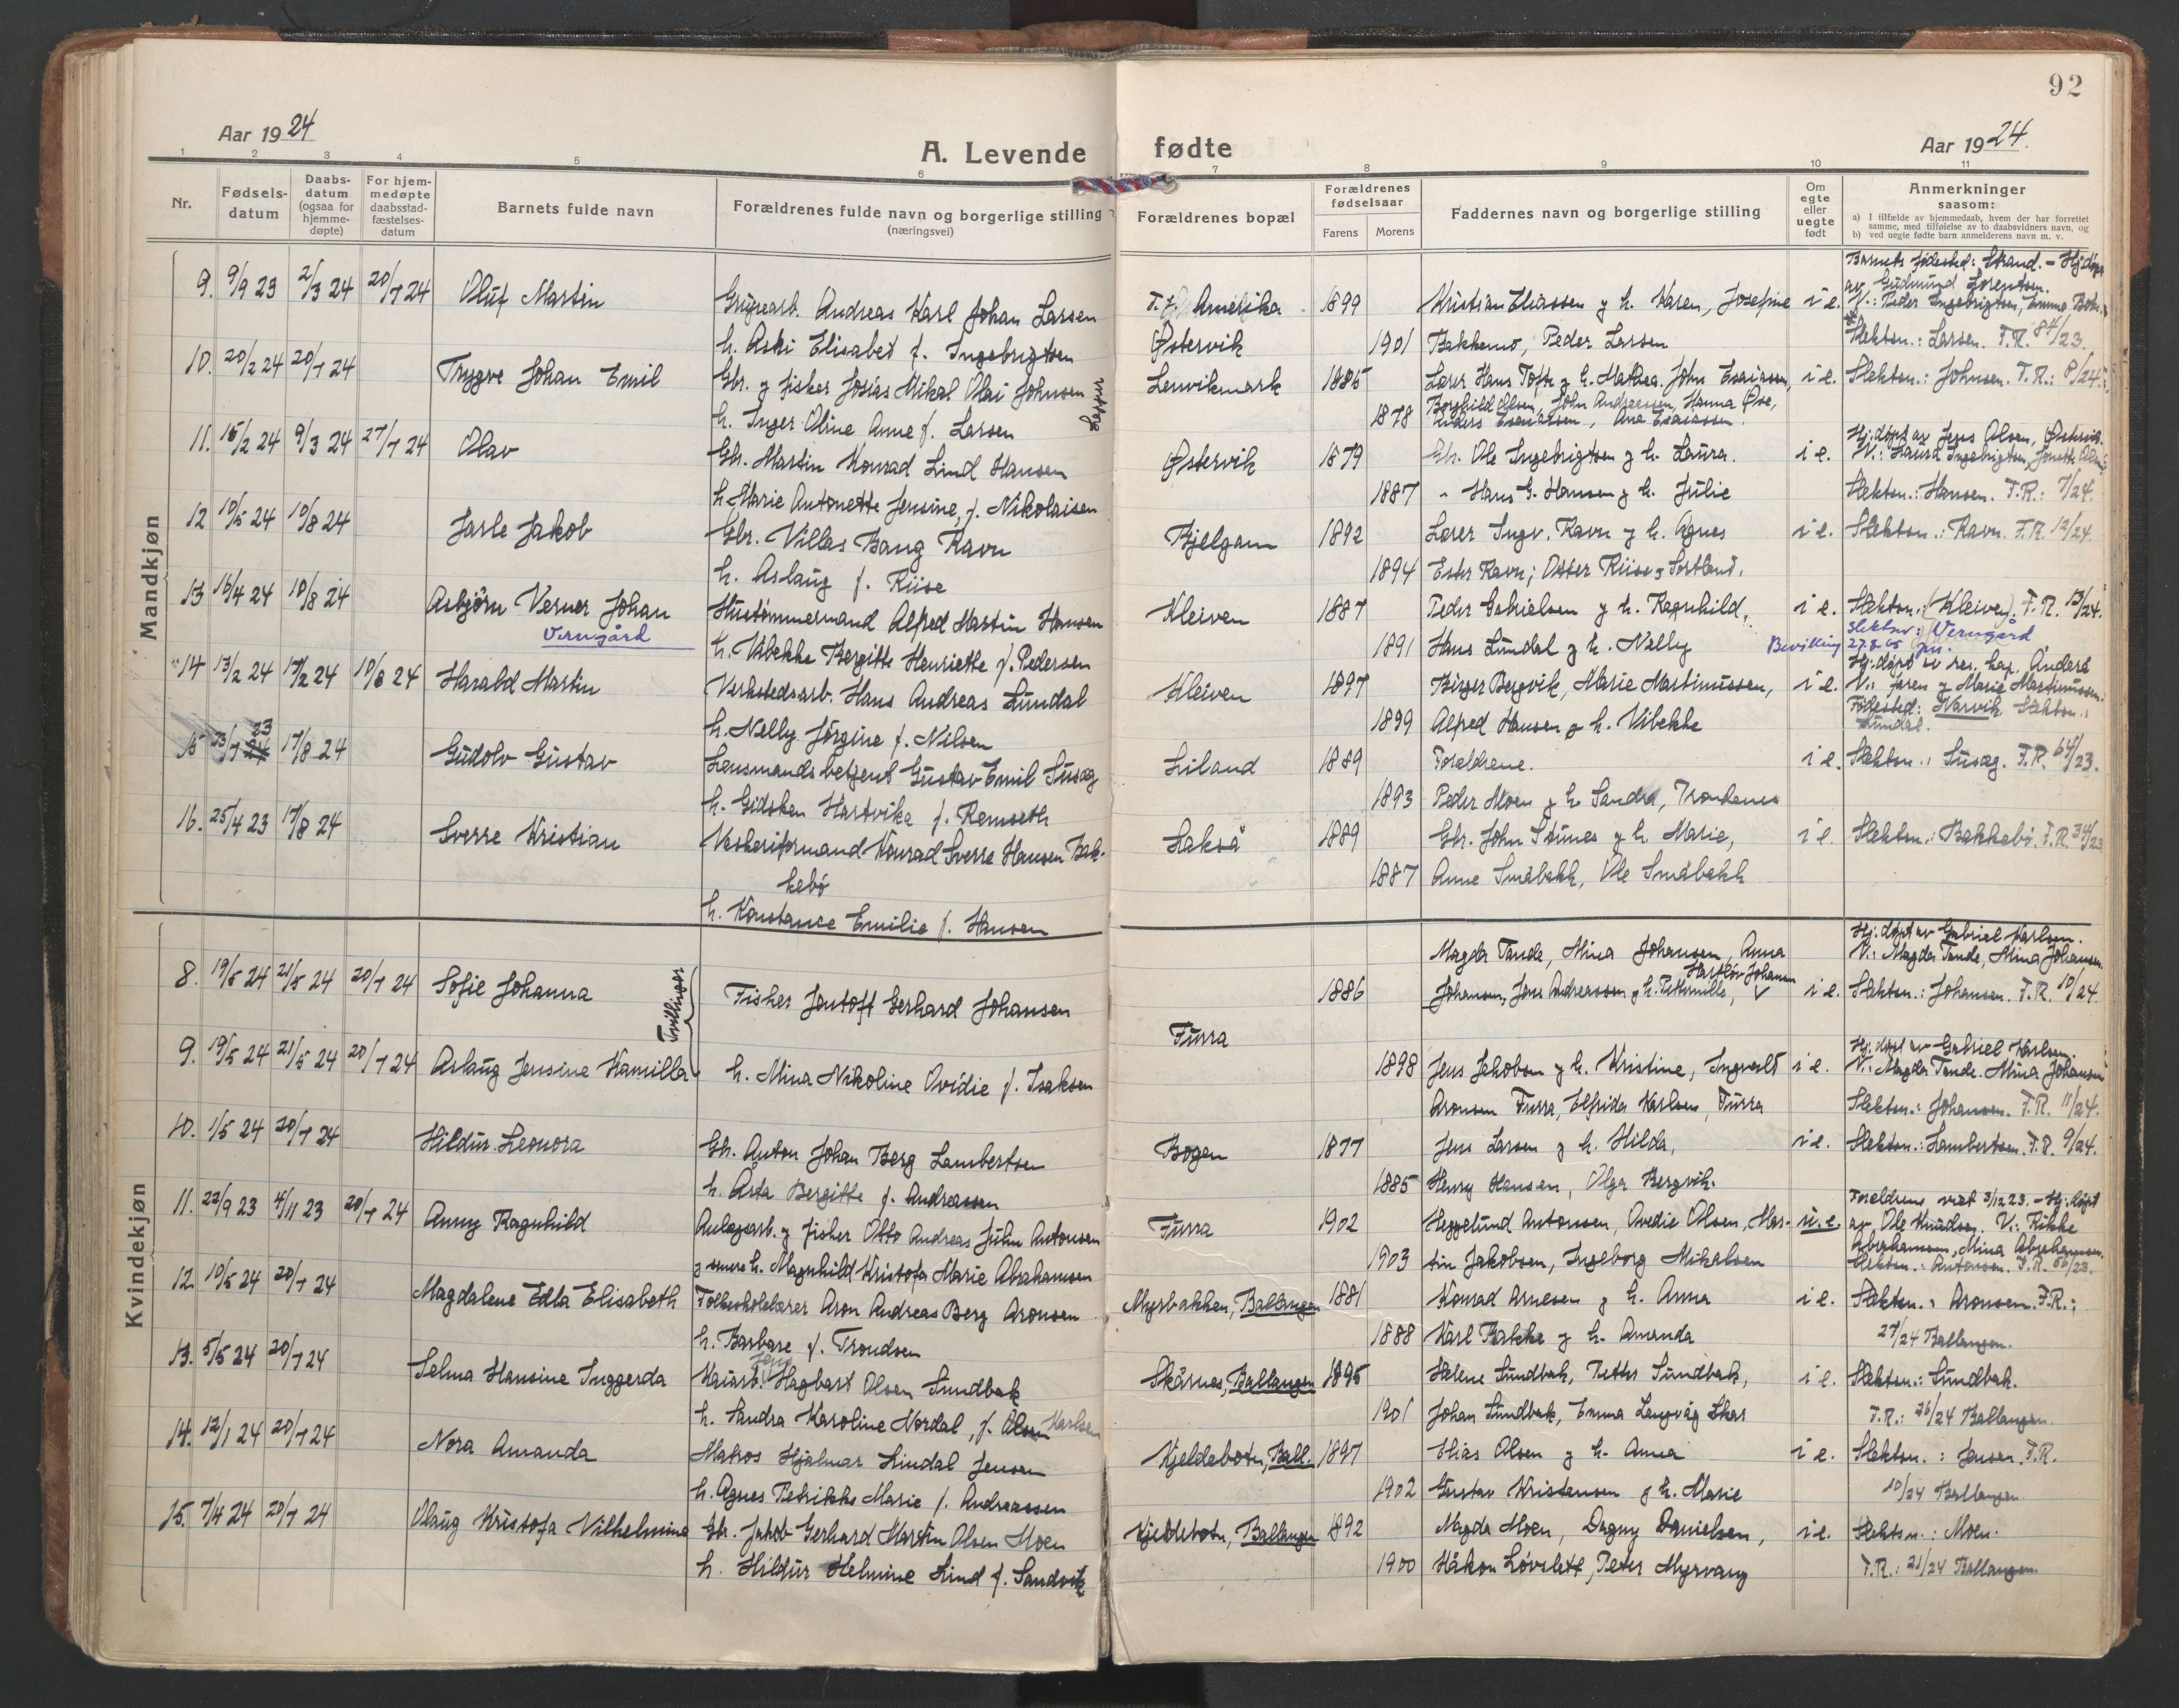 92
Aar 1924
A. Levende fødte
Aar 1924.
1 2 3 4 5 6 7 8 9 10 11
Nr.
Fødsels-
datum
Daabs-
datum
(ogsaa for
hjemme-
døpte)
For hjem-
medøpte
daabsstad-
fæstelses-
datum
Barnets fulde navn
Forældrenes fulde navn og borgerlige stilling
(næringsvei)
Forældrenes bopæl
Forældrenes
fødselsaar
Farens Morens
Faddernes navn og borgerlige stilling
Om
egte
eller
uegte
født
Anmerkninger
saasom:
a) I tilfælde av hjemmedaab, hvem der har forrettet
samme, med tilføielse av to daabsvidners navn, og
b) ved uegte fødte barn anmelderens navn m. v.
Mandkjøn
9. 9/9 23 2/3 24 20/7 24 Oluf Martin Grubearb. Andreas Karl Johan Larsen Amerika 1899 Kristian Eliassen g h. Karen, Josefine i e. Barnets fødested: Strand. - Hj.døpt
av Gudmund Lorentsen.
V.: Peder Ingebrigtsen, Emma
h. Aski Elisabet f. Ingebrigtsen Østervik 1901 Bakkemo, Peder Larsen Slektsn.: Larsen. F.R. 84/23.
10. 20/2 24 20/7 24 Trygve Johan Emil Gbr. g fisker Josias Mikal Olai Johnsen Lenvikmark 1885 Lærer Hans Tofte g h. Mathea. John Esaiassen, i e. Slektsn.: Johnsen. F.R.: 8/24.
h. Inger Oline Anne f. Larsen 1878 Borghild Olsen, John Andreassen, Hanna Øve,
Anders Esaiassen, Ane Esaiassen.
11. 15/2 24 9/3 24 27/7 24 Olav Gbr. Martin Konrad Lind Hansen Østervik 1879 Gbr. Ole Ingebrigtsen g h. Laura. i e. Hj:døpt av Jens Olsen, Østervik.
V.: Laura Ingebrigtsen,
h. Marie Antonette Jensine, f. Nikolaisen 1887 " Hans G. Hansen g h. Julie Slektsn.: Hansen. F.R.: 7/24.
12 10/5 24 10/8 24 Jarle Jakob Gbr. Villas Bang Ravn Bjelgam 1892 Lærer Ingv. Ravn g h. Agnes i e. Slektsn.: Ravn. F.R. 12/24.
h. Aslaug f. Riise 1894 Ester Ravn; Osker Riise, Sortland.
13 16/4 24 10/8 24 Asbjörn Verner Johan Hustømmermand Alfred Martin Hansen Kleiven 1887 Peder Gabrielsen g h. Ragnhild, i e. Slektsn.: (Kleiven). F.R. 13/24.
Verngård h. Vibekke Bergitte Henriette f. Pedersen 1891 Hans Lundal g h. Nelly Bevilling 27.8.65 Slektsnv: Verngård
14 13/2 24 17/2 24 10/8 24 Harald Martin Verkstedsarb. Hans Andreas Lundal Kleiven 1897 Birger Bergvik, Marie Martinussen, i e. Hj:døpt av res. kap. Anders
V.: faren g Marie Martinussen.
h. Nelly Jörgine f. Nilsen 1899 Alfred Hansen g h. Vibekke Fødested: Narvik Slektsn.:
Lundal.
15 23/7 23 17/8 24 Gudolv Gustav Lensmandsbetjent Gustav Emil Susæg Liland 1889 Forældrene. i e. Slektsn.: Susæg. F.R. 64/23.
h. Gidsken Hartvika f. Remseth 1893 Peder Moen g h. Sandra, Trondenes
16. 25/4 23 17/8 24 Sverre Kristian Vaskeriformand Konrad Sverre Hansen Bak- Lakså 1889 Gbr. John Stunes g h. Marie, i e. Slektsn.: Bakkebö. F.R. 34/23
kebö 1887 Anne Småbakk, Ole Småbakk
h. Konstance Emilie f. Hansen
Kvindekjøn
8. 19/5 24 21/5 24 20/7 24 Sofie Johanna Tvillinger Fisker Jentoft Gerhard Johansen 1886 Magda Tande, Mina Johansen, Anna
Johansen, Jens Andreassen g h. Petternille, Johansen i e. Hj:døpt av Gabriel Karlsen.
V.: Magda Tande, Mina Johansen.
Slektsn.: Johansen. F.R. 10/24.
Furra
9. 19/5 24 21/5 24 20/7 24 Aslaug Jensine Kamilla h. Mina Nikoline Ovidie f. Isaksen 1898 Jens Jakobsen g h. Kristine, Ingvald i e. Hj:døpt av Gabriel Karlsen.
V.: Magda Tande. Mina Johansen
Aronsen Furra, Elfrida Karlsen, Furra Slektsn.: Johansen. F.R. 11/24.
10. 1/5 24 20/7 24 Hildur Leonora Gbr. Anton Johan Berg Lambertsen Bogen 1877 Jens Larsen g h. Hilda, i e. Slektsn.: Lambertsen. F.R. 9/24.
h. Asta Bergitte f. Andreassen 1885 Henry Hansen, Olga Bergvik.
11. 22/9 23 4/11 23 20/7 24 Anny Ragnhild Anlægsarb. g fisker Otto Andreas Juhn Antonsen Furra 1902 Heggelund Antonsen, Ovedie Olsen, Mar- u.e. Foreldrene viet 3/12 23. - Hj:døpt
av Ole Knudsen. V.: Rikke
g senere h. Magnhild Kristofa Marie Abrahamsen 1903 tin Jakobsen, Ingeborg Mikalsen Abrahamsen, Mina Abrahamsen.
Slektsn.: Antonsen. F.R. 86/23.
12. 10/5 24 20/7 24 Magdalene Edla Elisabeth Folkeskolelærer Aron Andreas Berg Aronsen Myrbakken, Ballangen 1881 Konrad Arnesen g h. Anna i e. Slektsn.: Aronsen. F.R.:
h. Barbare f. Trondsen 1888 Karl Bakke g h. Amanda 27/24 Ballangen.
13. 5/5 24 20/7 24 Selma Hansine Inggerda Kaiarb. Jens Hagbart Olsen Sundbak Skårnes, Ballangen 1895 Helene Sundbak, Petter Sundbak, i e. Slektsn.: Sundbak.
h. Sandra Karoline Nordal, f. Olsen Karlsen 1901 Johan Sundbak, Emma Langvåg Skar F.R.: 26/24 Ballangen.
14. 12/1 24 20/7 24 Nora Amanda Matros Hjalmar Lindal Jensen Kjeldebotn, Ball. 1897 Elias Olsen g h. Anna i e. Slektsn.: Jensen. F.R.
h. Agnes Petrikke Marie f. Andreassen 1902 Gustav Kristensen g h. Marie 10/24 Ballangen
15. 7/4 24 20/7 24 Olaug Kristofa Vilhelmine Gbr. Jakob Gerhard Martin Olsen Moen Kjeldebotn, Ballangen 1892 Magda Moen, Dagny Danielsen, i e. Slektsn.: Moen.
h. Hildur Helmine Lind f. Sandvik 1900 Håkon Løvslett, Peter Myrvang F.R.: 21/24 Ballangen.